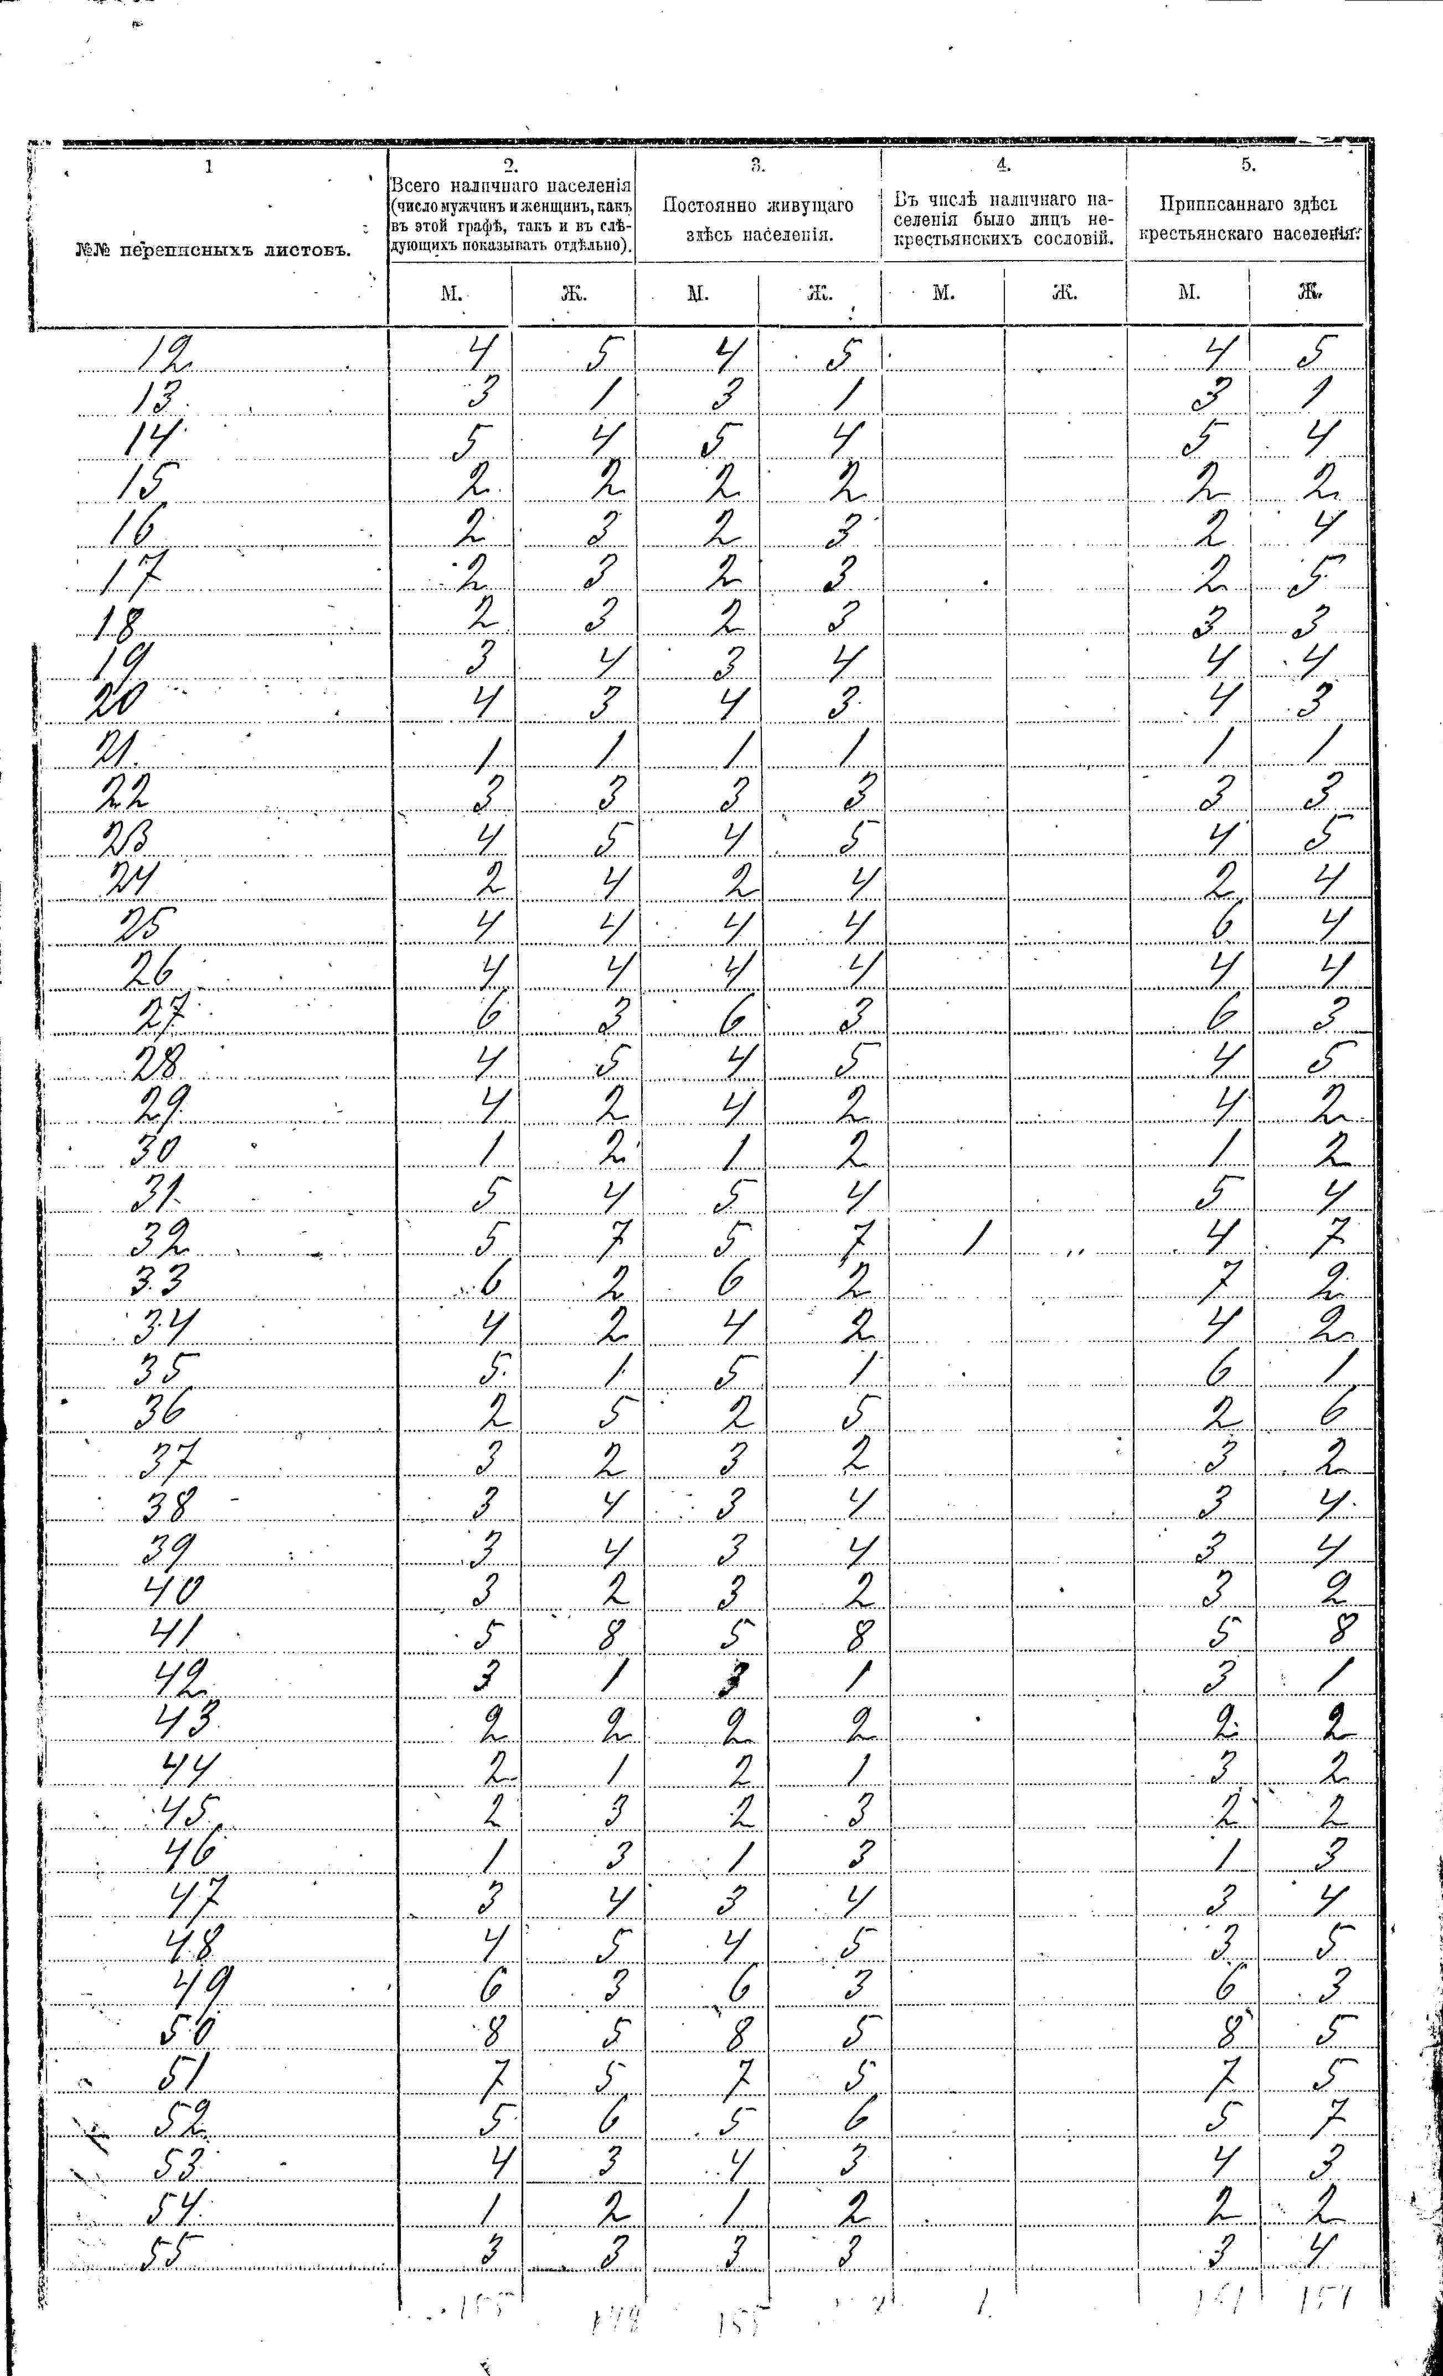 1 2. 3. 4. 5.
№№ переписныхъ листовъ.
Всего наличнаго населенія
(число мужчинъ и женщинъ, какъ
въ этой графѣ, такъ и въ слѣ-
дующихъ показывать отдѣльно).
Постоянно живущаго
здѣсь населенія.
Въ числѣ наличнаго на-
селенія было лицъ не-
крестьянскихъ сословій.
Приписаннаго здѣсь
крестьянскаго населенія.
М. Ж. М. Ж. М. Ж. М. Ж.
12 4 5 4 5 4 5
13 3 1 3 1 3 1
14 5 4 5 4 5 4
15 2 2 2 2 2 2
16 2 3 2 3 2 4
17 2 3 2 3 2 5
18 2 3 2 3 3 3
19 3 4 3 4 4 4
20 4 3 4 3 4 3
21 1 1 1 1 1 1
22 3 3 3 3 3 3
23 4 5 4 5 4 5
24 2 4 2 4 2 4
25 4 4 4 4 6 4
26 4 4 4 4 4 4
27 6 3 6 3 6 3
28 4 5 4 5 4 5
29 4 2 4 2 4 2
30 1 2 1 2 1 2
31 5 4 5 4 5 4
32 5 7 5 7 1 „ 4 7
33 6 2 6 2 7 2
34 4 2 4 2 4 2
35 5 1 5 1 6 1
36 2 5 2 5 2 6
37 3 2 3 2 3 2
38 3 4 3 4 3 4
39 3 4 3 4 3 4
40 3 2 3 2 3 2
41 5 8 5 8 5 8
42 3 1 3 1 3 1
43 2 2 2 2 2 2
44 2 1 2 1 3 2
45 2 3 2 3 2 2
46 1 3 1 3 1 3
47 3 4 3 4 3 4
48 4 5 4 5 3 5
49 6 3 6 3 6 3
50 8 5 8 5 8 5
51 7 5 7 5 7 5
52 5 6 5 6 5 7
53 4 3 4 3 4 3
54 1 2 1 2 2 2
55 3 3 3 3 3 4
155 148 155 1